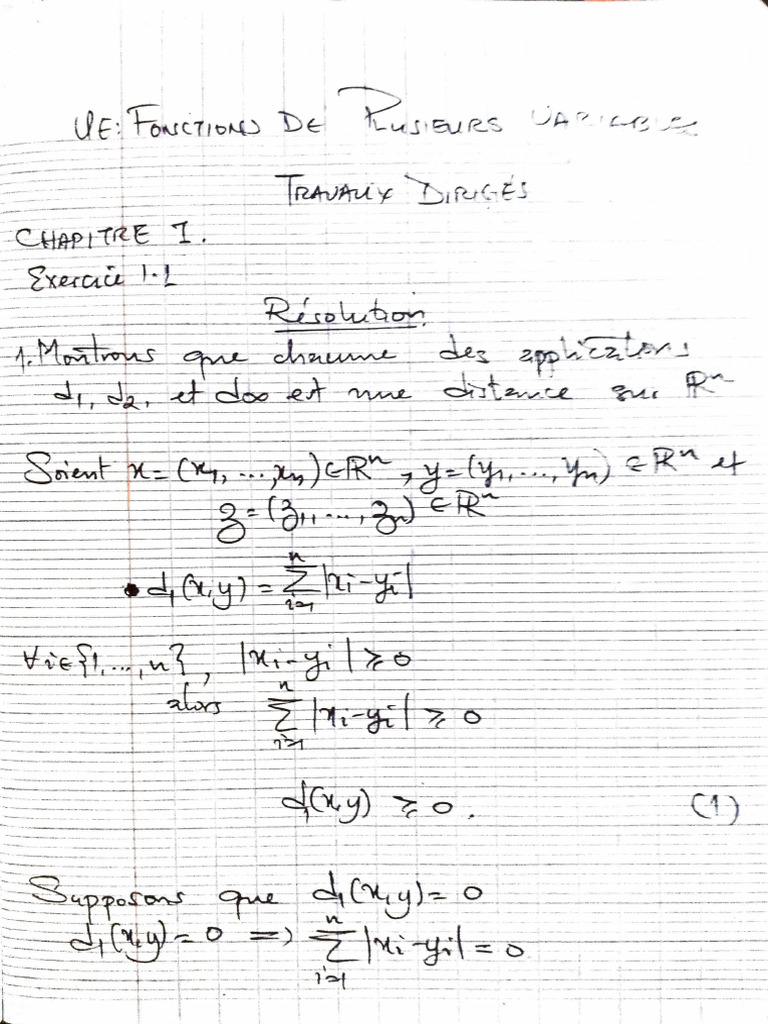 UE: FONCTIONS DE PLUSIEURS VARIABLES
TRAVAUX DIRIGÉS
CHAPITRE I.
Exercice 1.1
Résolution
1. Montrons que chacune des applications
d₁, d₂, et d∞ est une distance sur ℝⁿ
Soient x = (x₁, ..., xₙ) ∈ ℝⁿ, y = (y₁, ..., yₙ) ∈ ℝⁿ et
z = (z₁, ..., zₙ) ∈ ℝⁿ
• d₁(x,y) = ∑ⁿᵢ₌₁ |xᵢ - yᵢ|
∀ i ∈ {1, ..., n}, |xᵢ - yᵢ| ⩾ 0
alors ∑ⁿᵢ₌₁ |xᵢ - yᵢ| ⩾ 0
d₁(x,y) ⩾ 0. (1)
Supposons que d₁(x,y) = 0
d₁(x,y) = 0 ⟹ ∑ⁿᵢ₌₁ |xᵢ - yᵢ| = 0